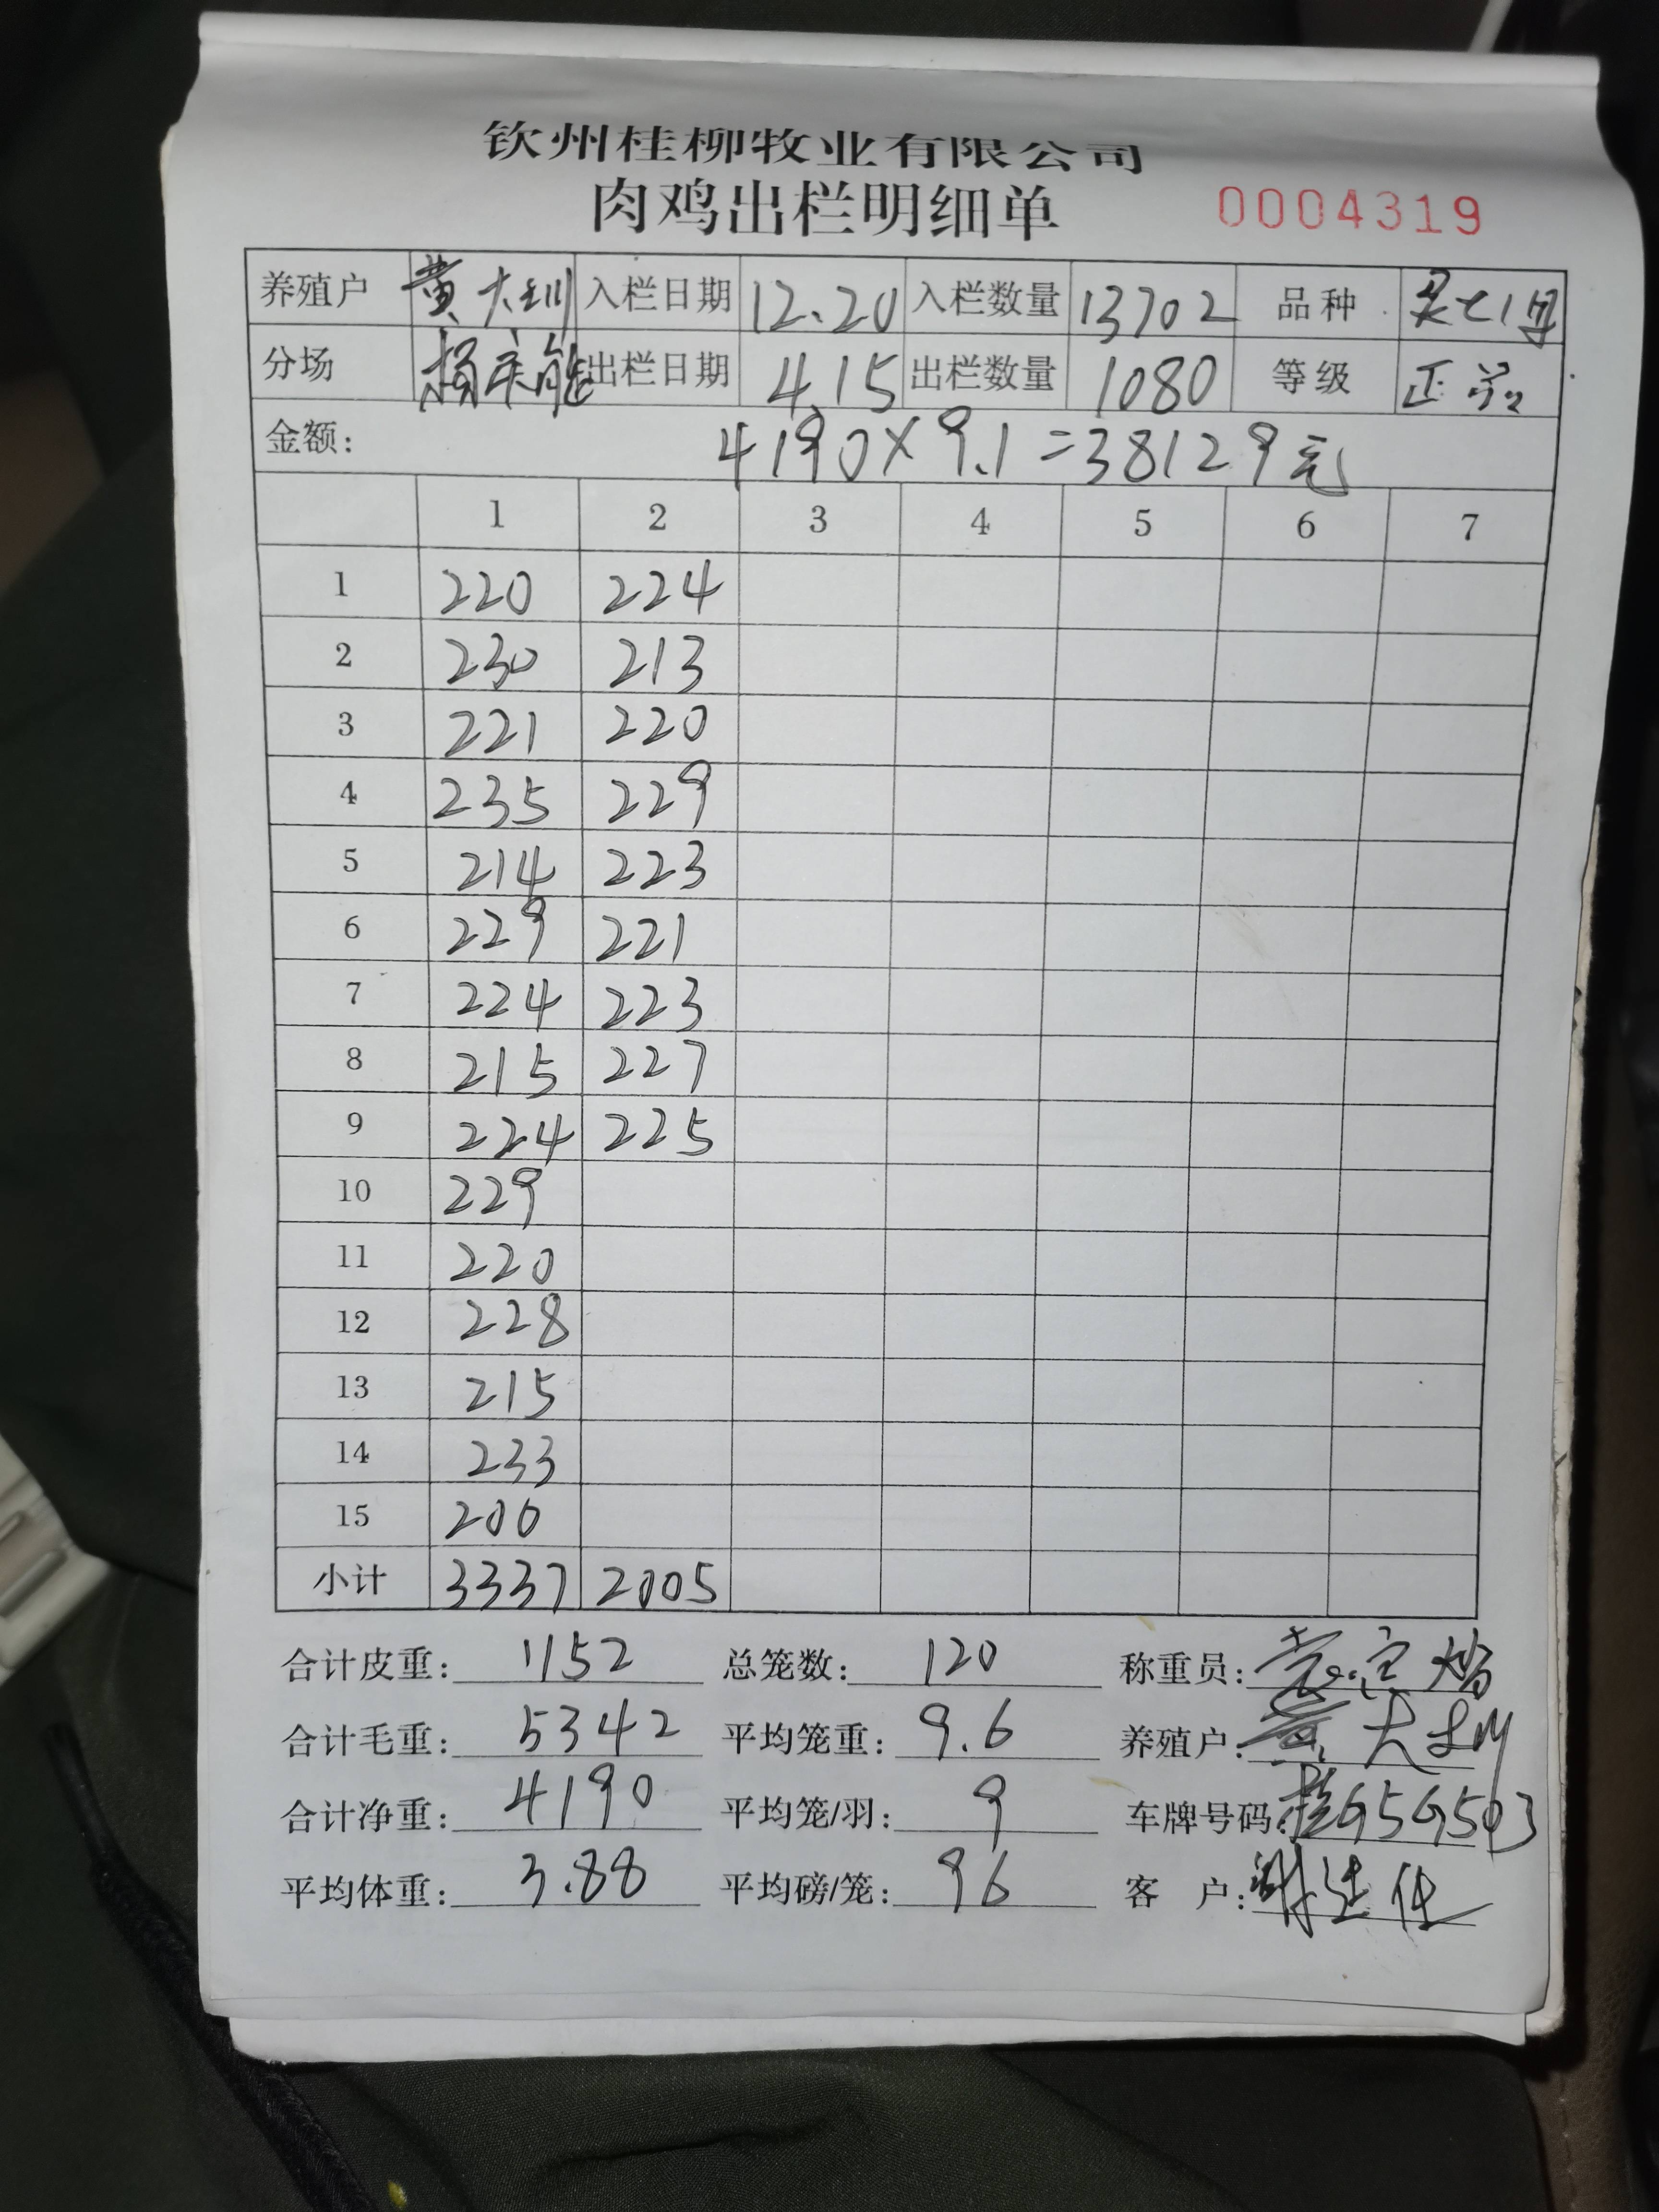 钦州桂柳牧业有限公司
肉鸡出栏明细单 0004319
养殖户 黄大 入栏日期 12.20 入栏数量 13702 品种
分场 出栏日期 4.15 出栏数量 1080 等级 正
金额: 4190×9.1=38129元
1 2 3 4 5 6 7
1 220 224
2 230 213
3 221 220
4 235 229
5 214 223
6 229 221
7 224 223
8 215 227
9 224 225
10 229
11 220
12 228
13 215
14 233
15 200
小计 3337 2005
合计皮重: 1152 总笼数: 120 称重员:
合计毛重: 5342 平均笼重: 9.6 养殖户: 黄大
合计净重: 4190 平均笼/羽: 9 车牌号码: 桂G5G503
平均体重: 3.88 平均磅/笼: 96 客 户: 谢